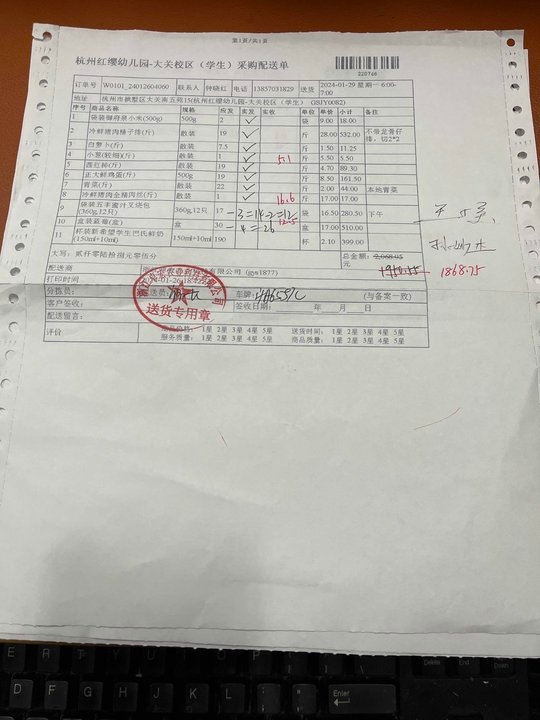 第1页/共1页
杭州红缨幼儿园-大关校区（学生）采购配送单
220746
订单号 W0101_24012604060 联系人 钟晓红 电话 13857031829 送货 2024-01-29 星期一 6:00-7:00
地址 杭州市拱墅区大关南五苑15(杭州红缨幼儿园-大关校区（学生） GSJY0082)
序号 商品名称 规格 应发 实发 实收 单位 单价 小计 备注
1 袋装御府泉小米(500g) 500g 2 袋 9.00 18.00
2 冷鲜猪肉梢子排(斤) 散装 19 斤 28.00 532.00 不带龙骨仔排，切2*2
3 白萝卜(斤) 散装 7.5 斤 1.50 11.25
4 小葱(较细)(斤) 散装 1 5.1 斤 5.50 5.50
5 西红柿(斤) 散装 19 斤 4.70 89.30
6 正大鲜鸡蛋(斤) 500g 19 斤 8.50 161.50
7 青菜(斤) 散装 22 斤 2.00 44.00 本地青菜
8 冷鲜猪肉全精肉丝(斤) 散装 1 16.6 斤 17.00 17.00
9 袋装五丰蜜汁叉烧包(360g,12只) 360g,12只 17 -3=14-2=12 袋 16.50 280.50 下午
10 盒装蓝莓(盒) 盒 30 -4=26 盒 17.00 510.00
11 杯装新希望学生巴氏鲜奶(150ml+10ml) 150ml+10ml 190 杯 2.10 399.00
大写：贰仟零陆拾捌元零伍分 总金额: 2,068.05元
1868.75
配送商 有限公司 (jgys1877)
打印时间
分拣员： 送员： 车牌： (与备案一致)
客户签收： 签收日期： 年 月 日
配送留言：
送货专用章
评价 商品价格： 1星 2星 3星 4星 5星 送货时间： 1星 2星 3星 4星 5星
服务质量： 1星 2星 3星 4星 5星 商品质量： 1星 2星 3星 4星 5星
Delete
End
Enter
E R T Y U
D F G H J K L